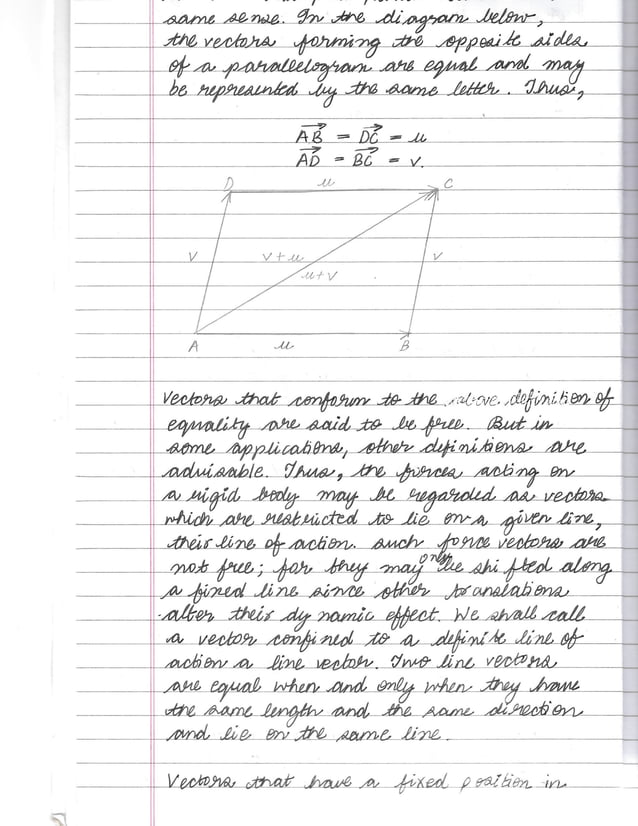 same sense. In the diagram below,
the vectors forming the opposite sides
of a parallelogram are equal and may
be represented by the same letter. Thus,
AB = DC = u
AD = BC = v.
D u C
v v+u v
u+v
A u B
Vectors that conform to the above definition of
equality are said to be free. But in
some applications, other definitions are
advisable. Thus, the forces acting on
a rigid body may be regarded as vectors
which are restricted to lie on a given line,
their line of action. such force vectors are
not free; for they may only be shifted along
a fixed line since other translations
alter their dynamic effect. We shall call
a vector confined to a definite line of
action a line vector. Two line vectors
are equal when and only when they have
the same length and the same direction
and lie on the same line.
Vectors that have a fixed position in